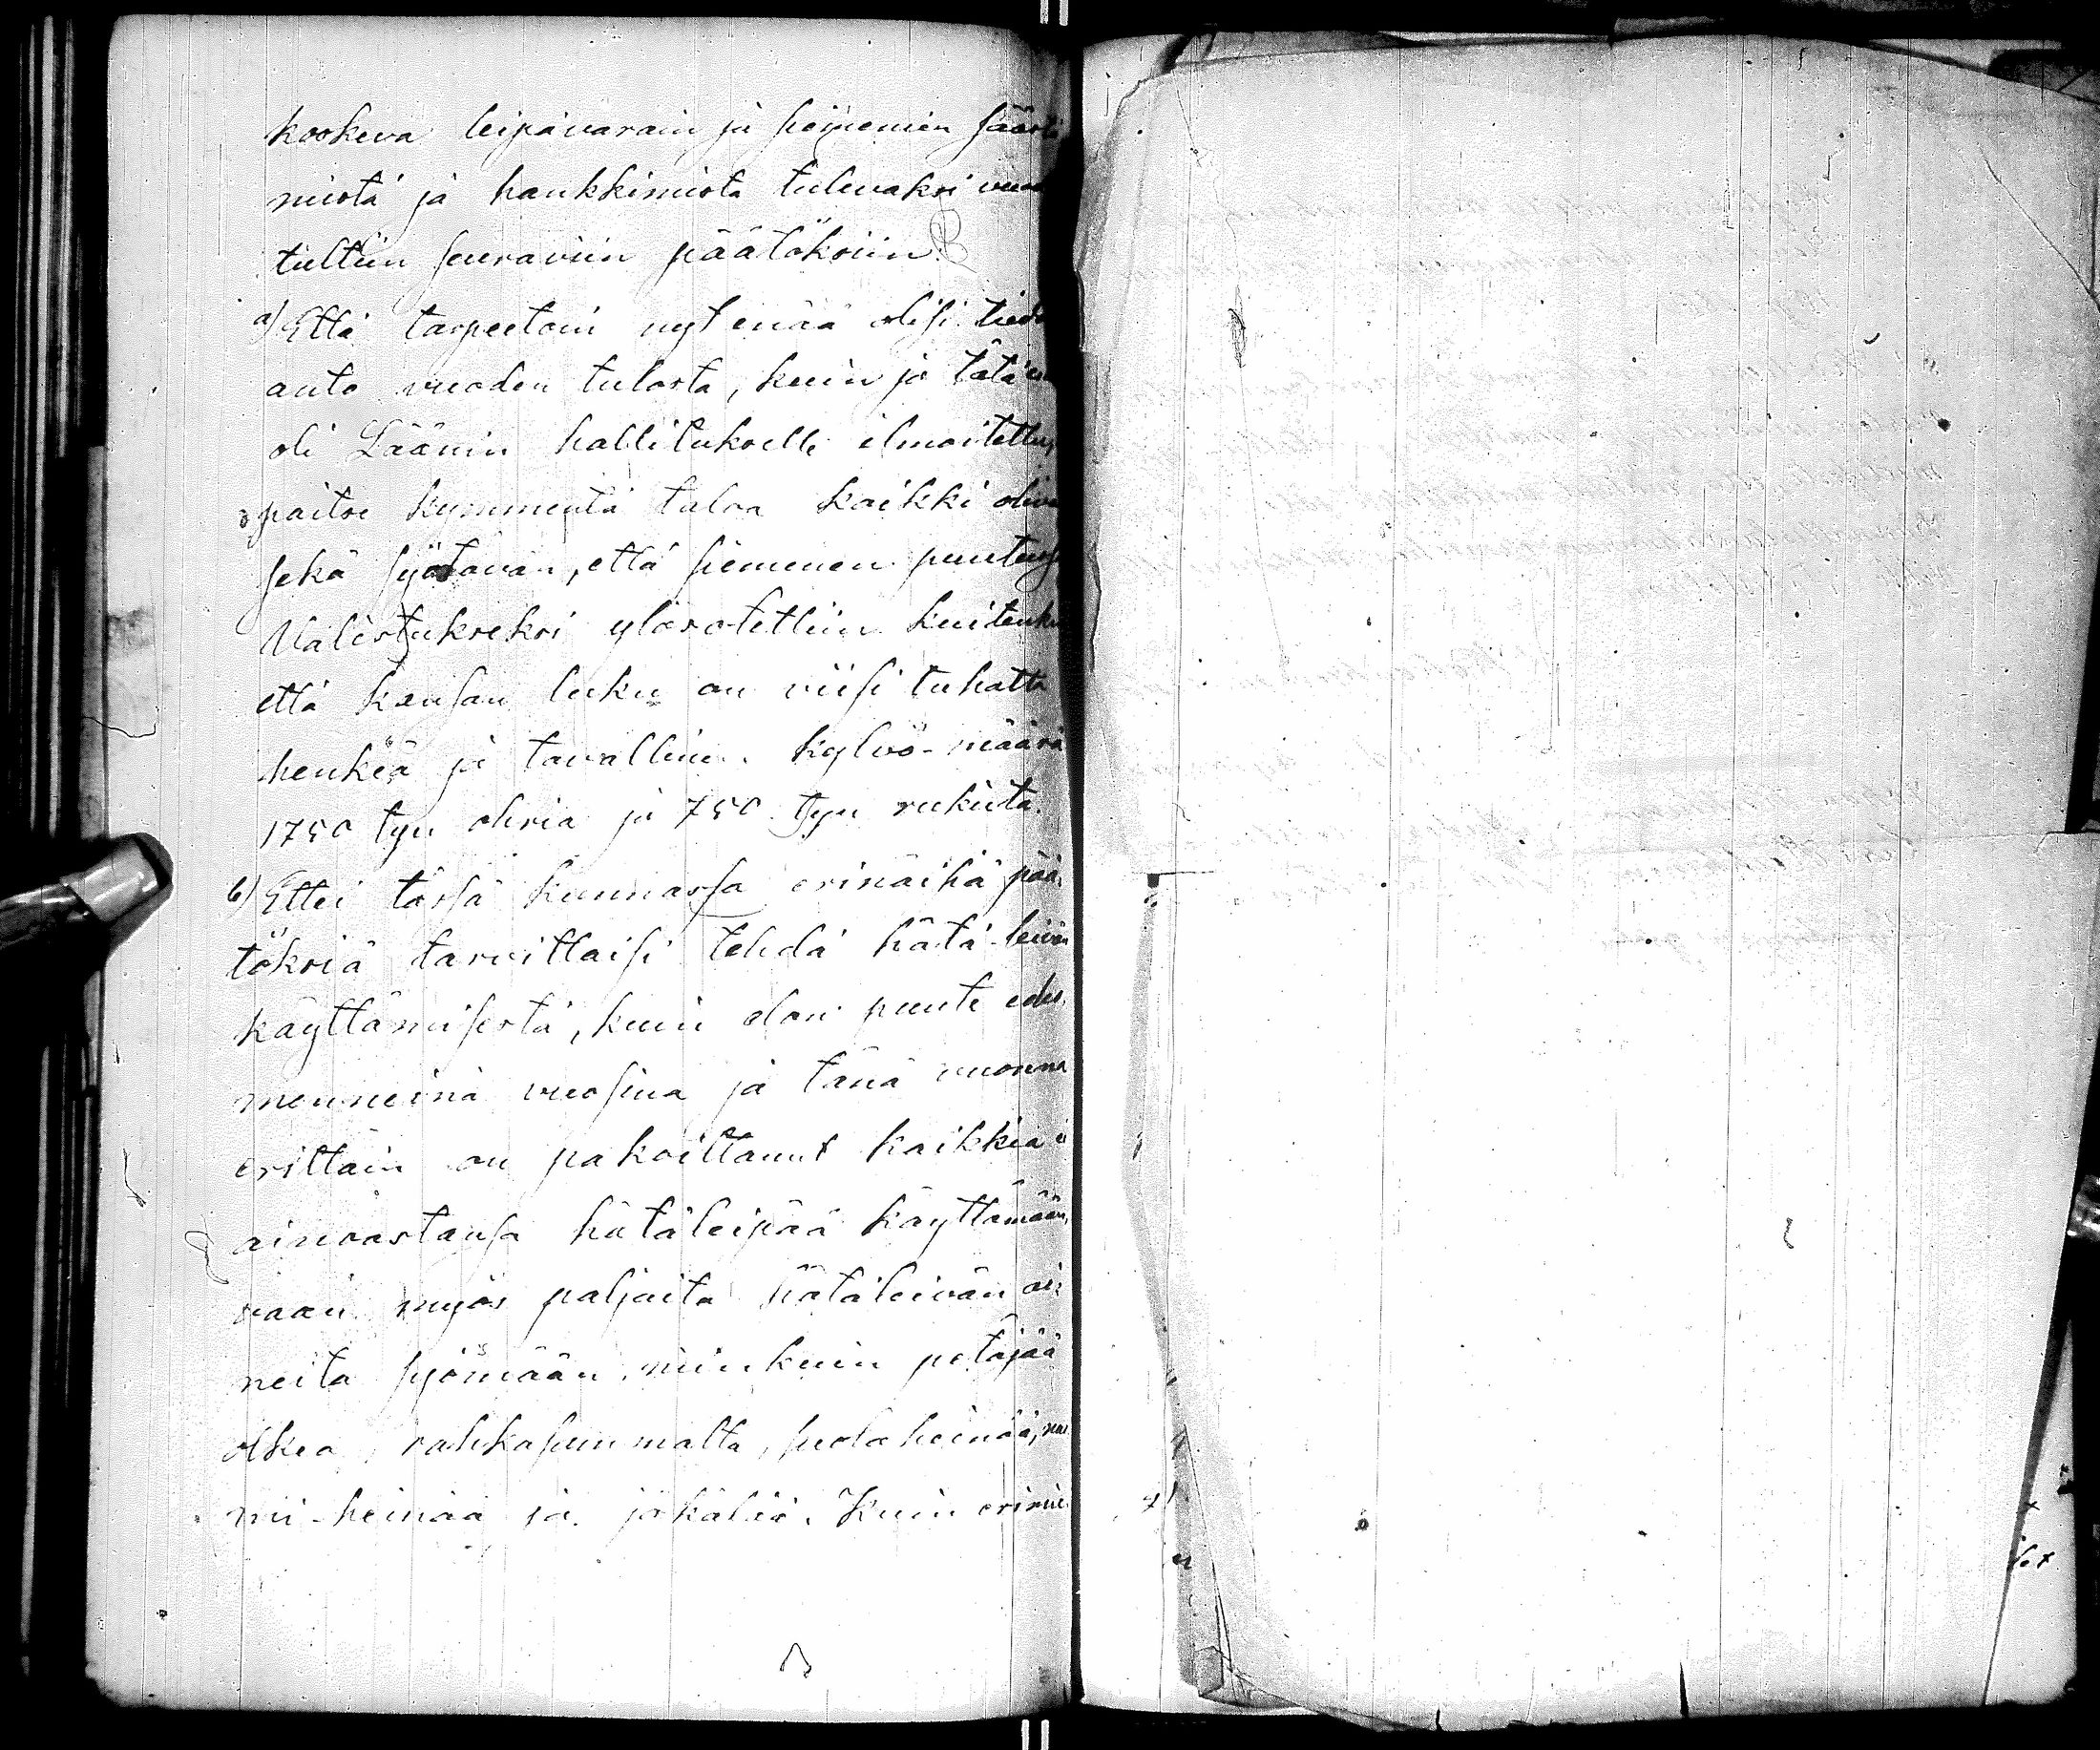 koskeva leipävarain ja siemenien sääsli
mistä ja hankkimista tulevaksi vuod
tultiin seuraviin päätöksiin:
a) Että tarpeetoin nyt enää olisi tiedo
anto vuoden tulosta, kuin jo tätä en
oli Läänin hallitukselle ilmoitettu,
paitse kymmentä taloa kaikki oliva
sekä syötävän, että siemenen puutees
Valistukseksi ylösotettiin kuitenki
että kansan luku on viisi tuhatta
henkeä ja tavallinen kylvö-määrä
1750 tyn ohria ja 750 tyn rukiita.
b) Ettei tässä kunnassa erinäisiä pää,
töksiä tarvittaisi tehdä hätä-leivän
käyttämisestä, kuin elon puute edes,
menneinä vuosina ja tänä vuonna
erittäin on pakoittanut kaikkia ei
ainoastansa hätäleipää käyttämään,
vaan myös paljaita hätäleivän ai,
neita syömään, niinkuin petäjää
olkea, rahkasammalta, suolaheinää,
mi-heinää ja jäkäliä. Kuin erinä